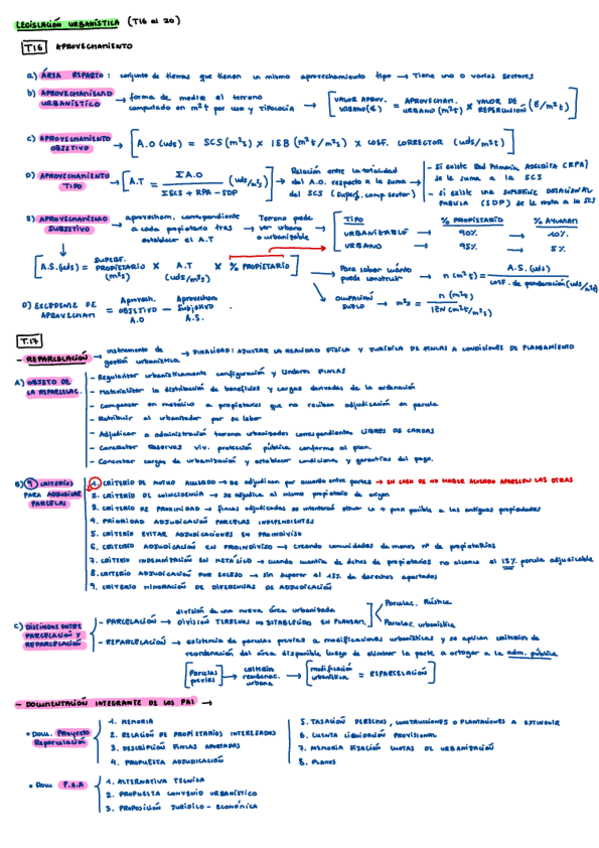 LEGISLACIÓN URBANÍSTICA (T16 al 20)
T16 APROVECHAMIENTO
a) ÁREA REPARTO: conjunto de tierras que tienen un mismo aprovechamiento tipo → Tiene uno o varios sectores
b) APROVECHAMIENTO URBANÍSTICO → forma de medir el terreno computado en m²t por uso y tipología → [VALOR APROV. URBANO(€) = APROVECHAM. URBANO (m²t) × VALOR DE REPERCUSIÓN (€/m²t)]
c) APROVECHAMIENTO OBJETIVO → [A.O (uds) = SCS (m²s) × IEB (m²t/m²s) × COEF. CORRECTOR (uds/m²t)]
D) APROVECHAMIENTO TIPO → [A.T = ΣA.O / ΣSCS + RPA - SDP (uds/m²s)] → Relación entre la totalidad del A.O. respecto a la suma del SCS (superf. comp. sector)
- Si existe Red Primaria Adscrita (RPA) se le suma a la SCS
- Si existe una SUPERFICIE DOTACIONAL PÚBLICA (SDP) se le resta a la SCS
E) APROVECHAMIENTO SUBJETIVO → aprovecham. correspondiente a cada propietario tras establecer el A.T → Terreno puede ser urbano o urbanizable →
TIPO % PROPIETARIO % AYUNTAM
URBANIZABLE → 90% → 10%
URBANO → 95% → 5%
[A.S.(uds) = SUPERF. PROPIETARIO (m²s) × A.T (uds/m²s) × % PROPIETARIO]
→ Para saber cuánto puede construir → n (m²t) = A.S. (uds) / COEF. de ponderación (uds/m²t)
→ OCUPACIÓN SUELO → m²s = n (m²t) / IEN (m²t/m²s)
D) EXCEDENTE DE APROVECHAM = Aprovech. OBJETIVO A.O - Aprovecham Subjetivo A.S.
T.17
- REPARCELACIÓN → instrumento de gestión urbanística → FINALIDAD: AJUSTAR LA REALIDAD FÍSICA Y JURÍDICA DE FINCAS A CONDICIONES DE PLANEAMIENTO
A) OBJETO DE LA REPARCELAC.
- Regularizar urbanísticamente configuración y linderos FINCAS
- Materializar la distribución de beneficios y cargas derivadas de la ordenación
- Compensar en metálico a propietarios que no reciban adjudicación en parcela
- Retribuir al urbanizador por su labor
- Adjudicar a administración terrenos urbanizados correspondientes LIBRES DE CARGAS
- Concretar RESERVAS viv. protección pública conforme al plan.
- Concretar cargas de urbanización y establecer condiciones y garantías del pago.
B) 9 CRITERIOS PARA ADJUDICAR PARCELAS
1. CRITERIO DE MUTUO ACUERDO → Se adjudican por acuerdo entre partes → EN CASO DE NO HABER ACUERDO APARECEN LAS OTRAS
2. CRITERIO DE COINCIDENCIA → se adjudica al mismo propietario de origen
3. CRITERIO DE PROXIMIDAD → fincas adjudicadas se intentará situar lo + prox posible a las antiguas propiedades
4. PRIORIDAD ADJUDICACIÓN PARCELAS INDEPENDIENTES
5. CRITERIO EVITAR ADJUDICACIONES EN PROINDIVISO
6. CRITERIO ADJUDICACIÓN EN PROINDIVISO → creando comunidades de menor nº de propietarios
7. CRITERIO INDEMNIZACIÓN EN METÁLICO → cuando cuantía de dchos de propietarios no alcance el 15% parcela adjudicable
8. CRITERIO ADJUDICACIÓN POR EXCESO → sin superar el 15% de derechos aportados
9. CRITERIO MINORACIÓN DE DIFERENCIAS DE ADJUDICACIÓN
C) DISTINGUE ENTRE PARCELACIÓN Y REPARCELACIÓN
- PARCELACIÓN → división de una nueva área urbanizada
→ DIVISIÓN TERRENO NO ESTABLECIDO EN PLANEAM. Parcelac. Rústica
Parcelac. urbanística
- REPARCELACIÓN → existencia de parcelas previas a modificaciones urbanísticas y se aplican criterios de reordenación del área disponible luego de eliminar la parte a otorgar a la adm. pública
[Parcelas previas] → criterio reordenac. urbana → [modificación urbanística = REPARCELACIÓN]
- DOCUMENTACIÓN INTEGRANTE DE LOS PAI →
• Docu. Proyecto Reparcelación
1. MEMORIA
2. RELACIÓN DE PROPIETARIOS INTERESADOS
3. DESCRIPCIÓN FINCAS APORTADAS
4. PROPUESTA ADJUDICACIÓN
5. TASACIÓN DERECHOS, CONSTRUCCIONES O PLANTACIONES A EXTINGUIR
6. CUENTA LIQUIDACIÓN PROVISIONAL
7. MEMORIA FIJACIÓN CUOTAS DE URBANIZACIÓN
8. PLANOS
• Docu P.A.I
1. ALTERNATIVA TÉCNICA
2. PROPUESTA CONVENIO URBANÍSTICO
3. PROPOSICIÓN JURÍDICO - ECONÓMICA